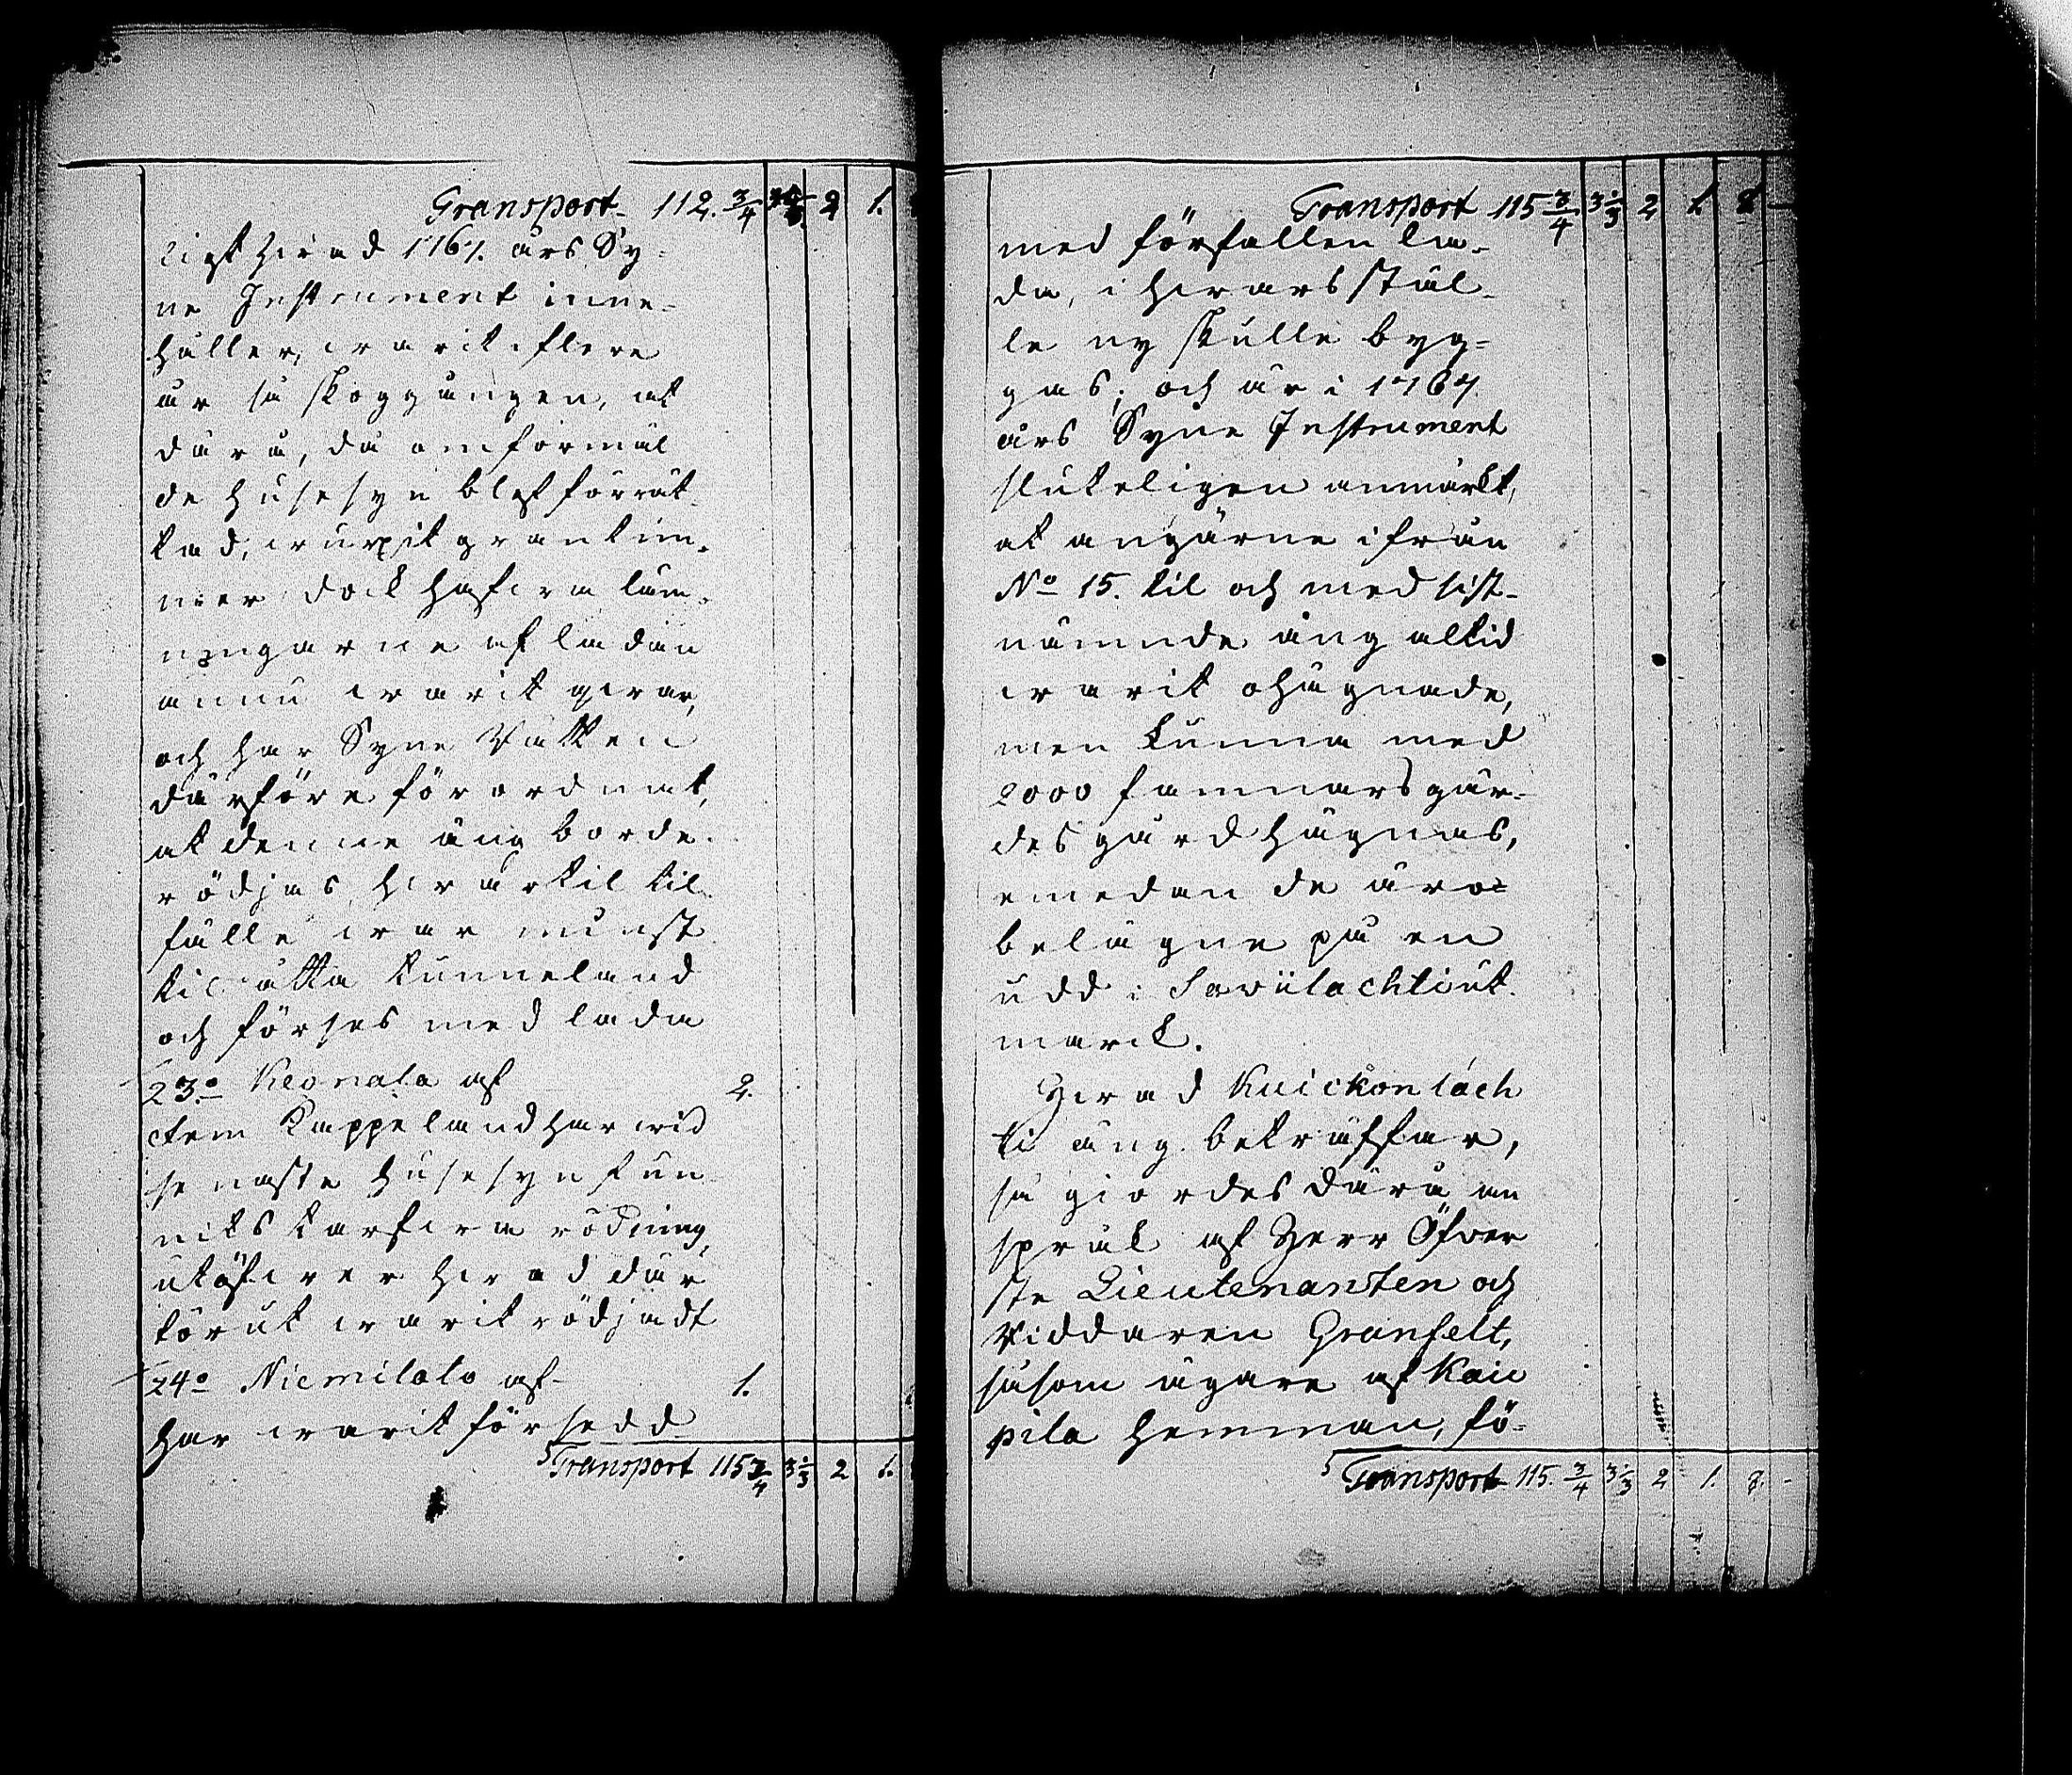 Transport 112. 3/4 2 1.
ligt hvad 1767. års Sy-
ne Instrument inne-
håller, warit i flere
år så skoggången, at
därå, då omförmäl
de Husesyn blef förrät
tad, wuxit grantim-
mer dock hafwa läm-
ningarne af ladan
ännu warit qwar,
och har Syne Rätten
därföre förordnat,
at denne äng borde
rödjas, hwartil til
fälle war minst
til åtta kunneland
och förses med lada
23:o Keonala af 2.
fem Kappeland har wid
senaste Husesyn fun
nits tarfwa rödning,
utöfwer hwad där
förut warit rödjadt
24:o Niemilato af 1.
har warit försedd
Transport 115 3/4 3 1/3 2 1.
Transport 115 3/4 3 1/3 2 1. 8 —
med förfallen la-
da, i hwars stäl-
le ny skulle byg-
gas; och är i 1767
års Syne Instrument
sluteligen anmärkt,
at ängarne ifrån
No 15. til och med sist-
nämnde äng altid
warit ohägnade,
men kunna med
2000 famnars gär-
desgård hägnas,
emedan de äro
belägne på en
udd i Sawilachti ut-
marck.
Hwad Kuickonlach
ti äng beträffar,
så giordes därå an
språk af Herr Öfwer
ste Lieutenanten och
Riddaren Granfelt,
såsom ägare af Kau
pila Hemman, fö-
Transport 115. 3/4 3 1/3 2 1. 8. -